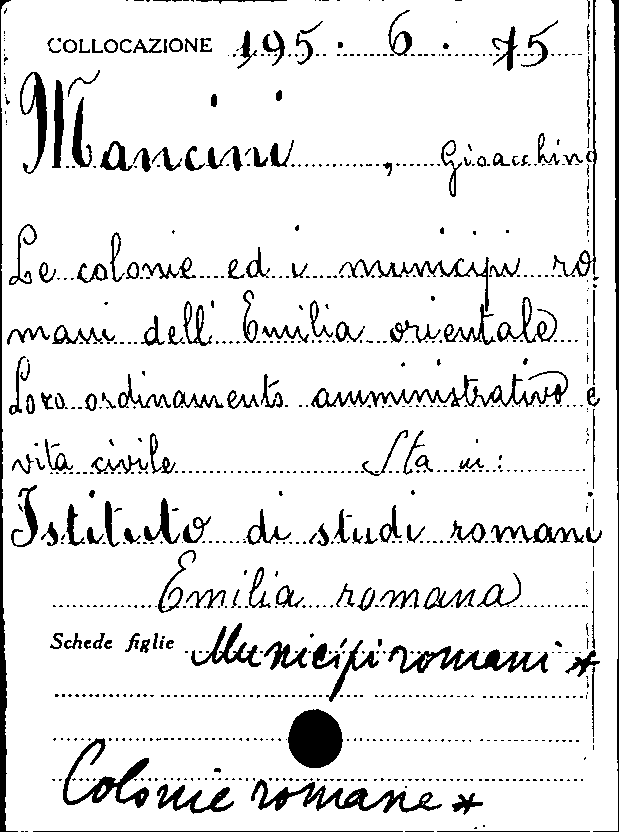 COLLOCAZIONE 195. 6. 75
Mancini, Gioacchino
Le colonie ed i municipi ro
mani dell'Emilia orientale
Loro ordinamento amministrativo e
vita civile Sta in:
Istituto di studi romani
Emilia romana
Schede figlie Municipi romani *
Colonie romane *